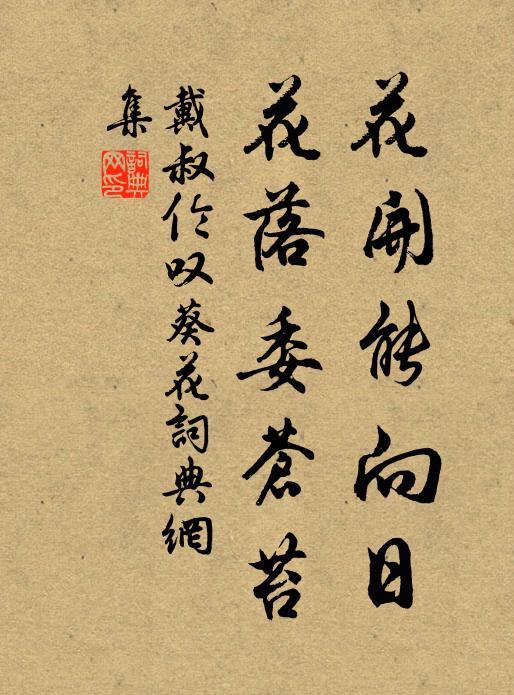 花開能向日
花落委蒼苔
戴叔伦叹葵花詞典網
集
詞典網印